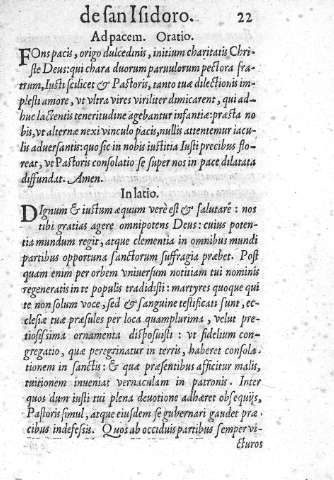 de san Isidoro. 22
Ad pacem. Oratio.
FOns pacis, origo dulcedinis, initium charitatis Chri-
ste Deus: qui chara duorum paruulorum pectora fra-
trum, Iusti scilicet & Pastoris, tanto tuæ dilectionis im-
plesti amore, vt vltra vires viriliter dimicarent, qui ad-
huc lactentis teneritudine agebantur infantiæ: præsta no
bis, vt alternæ nexi vinculo pacis, nullis attentemur iacu-
lis aduersantis: quo sic in nobis iustitia Iusti precibus flo-
reat, vt Pastoris consolatio se super nos in pace dilatata
diffundat. Amen.
Inlatio.
DIgnum & iustum æquum verè est & salutare: nos
tibi gratias agere omnipotens Deus: cuius poten-
tia mundum regit, atque clementia in omnibus mundi
partibus opportuna sanctorum suffragia præbet. Post
quam enim per orbem vniuersum notitiam tui nominis
regeneratis in te populis tradidisti: martyres quoque qui
te non solum voce, sed & sanguine testificati sunt, ec-
clesiæ tuæ præsules per loca quamplurima, velut pre-
tiosissima ornamenta disposuisti: vt fidelium con-
gregatio, quæ peregrinatur in terris, haberet consola-
tionem in sanctis: & quæ præsentibus afficitur malis,
tuitionem inueniat vernaculam in patronis. Inter
quos dum iusti tui plena deuotione adhæret obsequijs,
Pastoris simul, atque eiusdem se gubernari gaudet præ
cibus indefessis. Quos ab occiduis partibus semper vi-
cturos